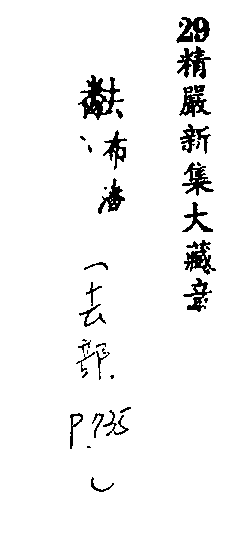 29精嚴新集大藏音
布潘(去部.P.735)